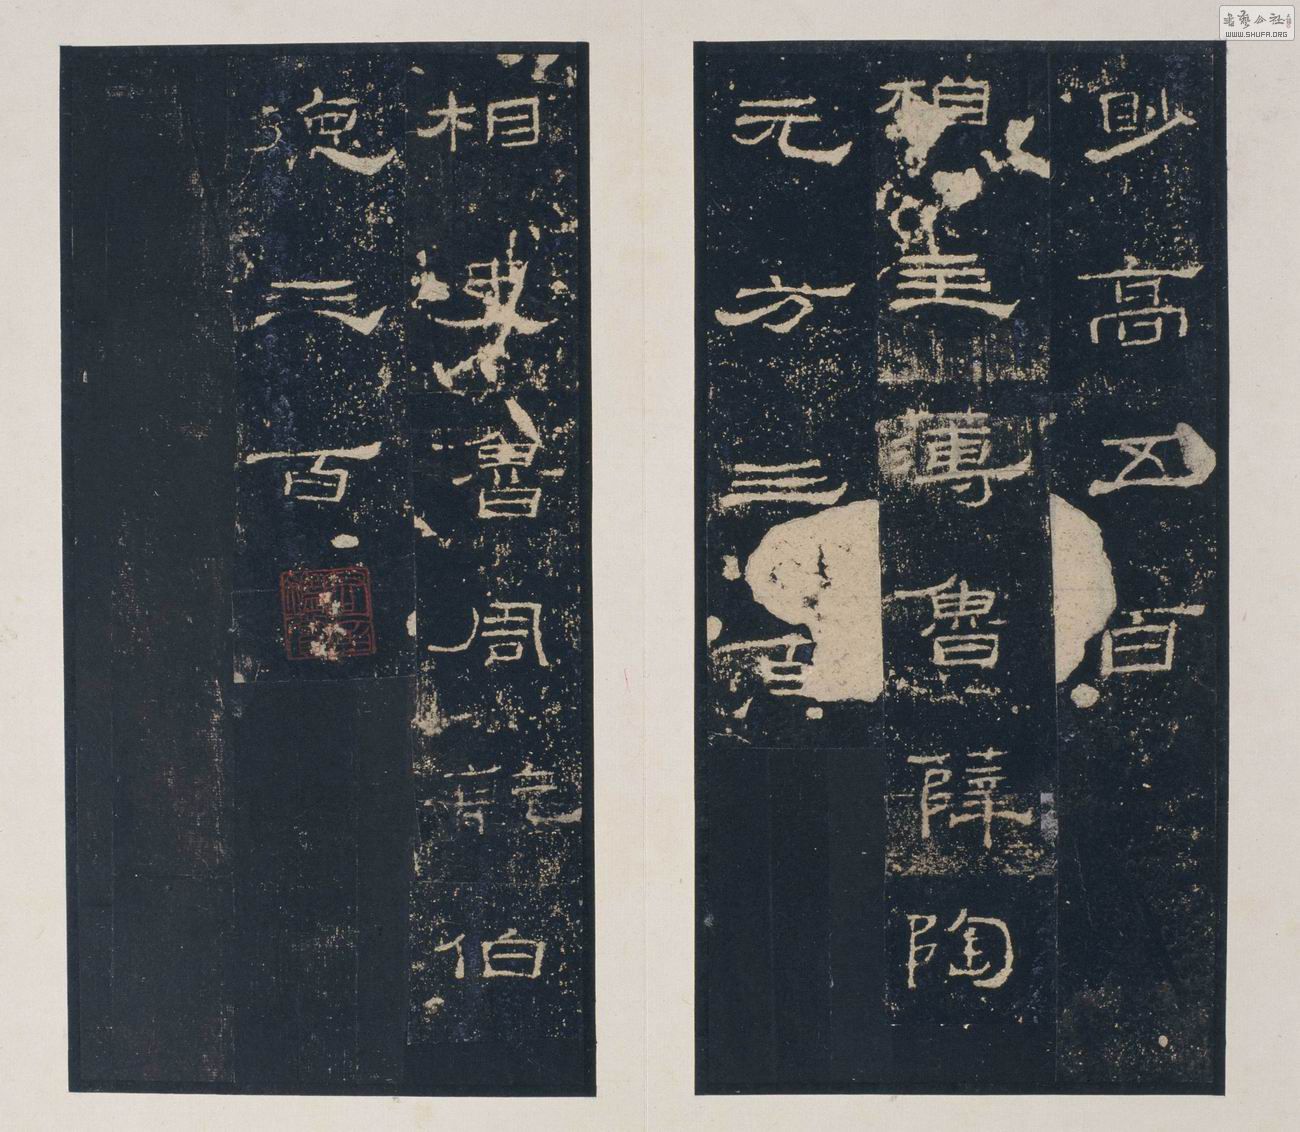 眇高五百
相主薄魯薛陶
元方三百
相史魯周乾伯
德三百
書藝公社
WWW.SHUFA.ORG